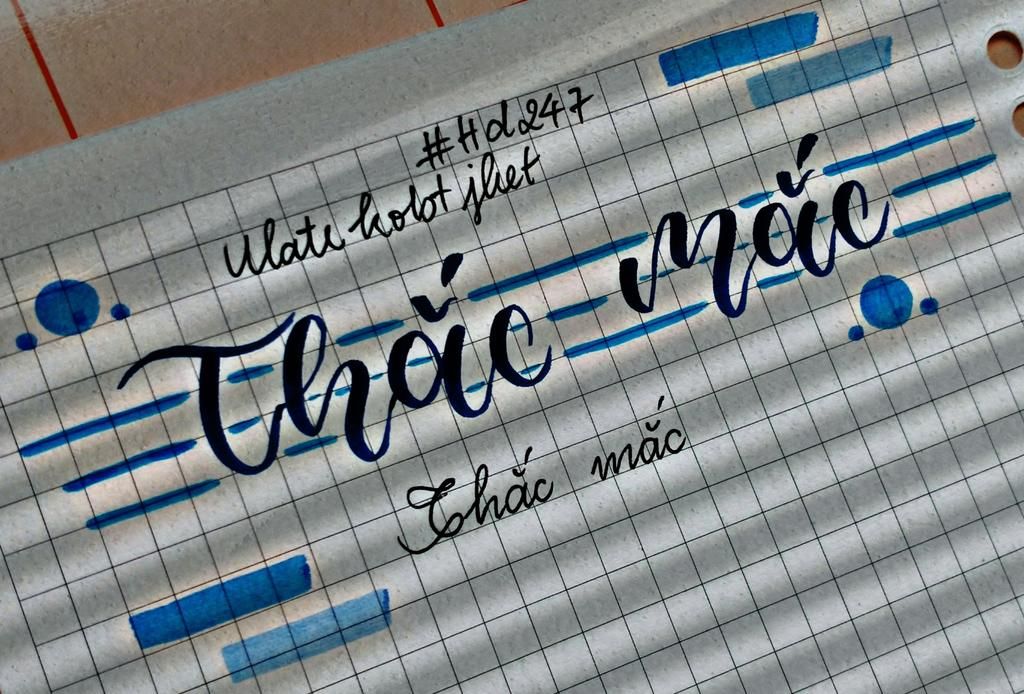 #Hd247
Ulate kolot jhet
Thắc mắc
Thắc mắc